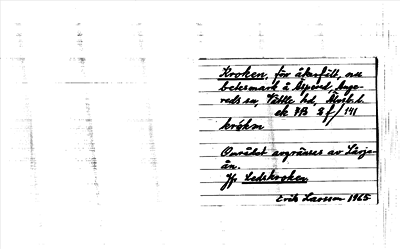 Kroken, för åkerfält, och
betesmark å Asperöd, Ange-
reds sn, Vättle hd, Älvsb.l.
ek PB 8 f/141
krókɯn
Området avgränsas av Lärje-
ån.
Jfr Ledskroken
Erik Larsson 1965